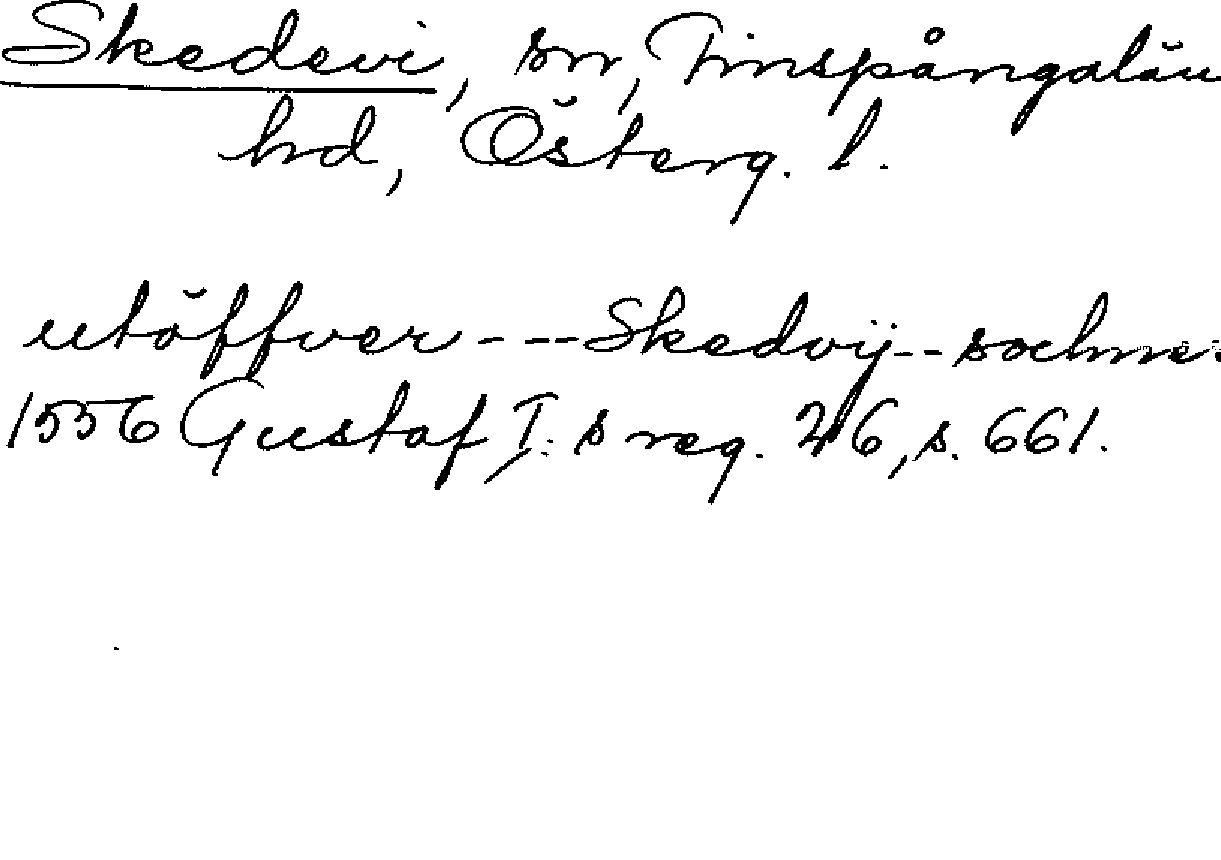 Skedevi, sn, Finspångalän
hd, Österg. l.
utöffver --- Skedvij -- sochne
1556 Gustaf I:s reg. 26, s. 661.